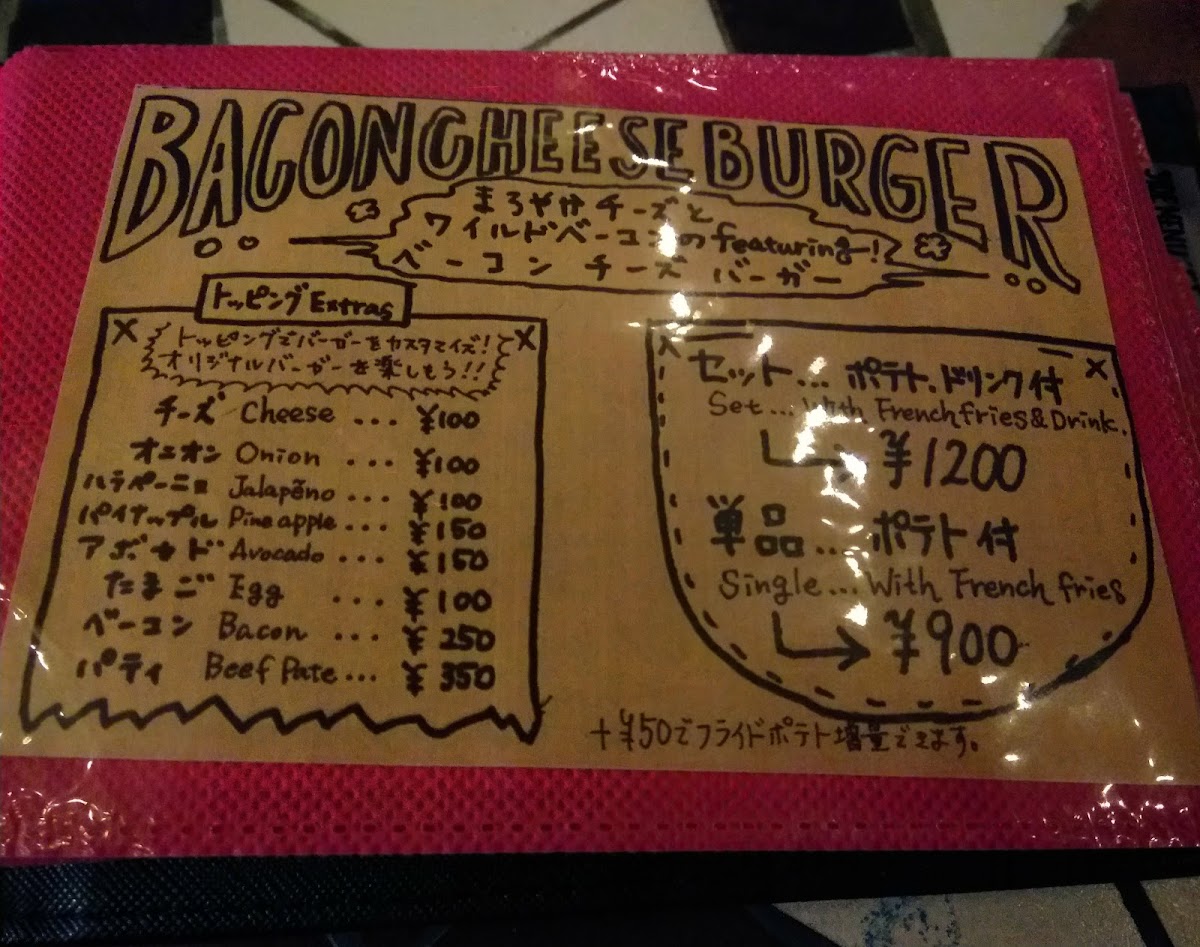 BACONCHEESEBURGER
まろやかチーズと
ワイルドベーコンのfeaturing!
ベーコン チーズ バーガー
トッピング Extras
トッピングでバーガーをカスタマイズ!
オリジナルバーガーを楽しもう!!
チーズ Cheese ... ¥100
オニオン Onion ... ¥100
ハラペーニョ Jalapẽno ... ¥100
パイナップル Pineapple ... ¥150
アボカド Avocado ... ¥150
たまご Egg ... ¥100
ベーコン Bacon ... ¥250
パティ Beef Pate... ¥350
セット... ポテト、ドリンク付
Set... With French fries & Drink.
¥1200
単品... ポテト付
Single... With French fries
¥900
+¥50でフライドポテト増量できます。